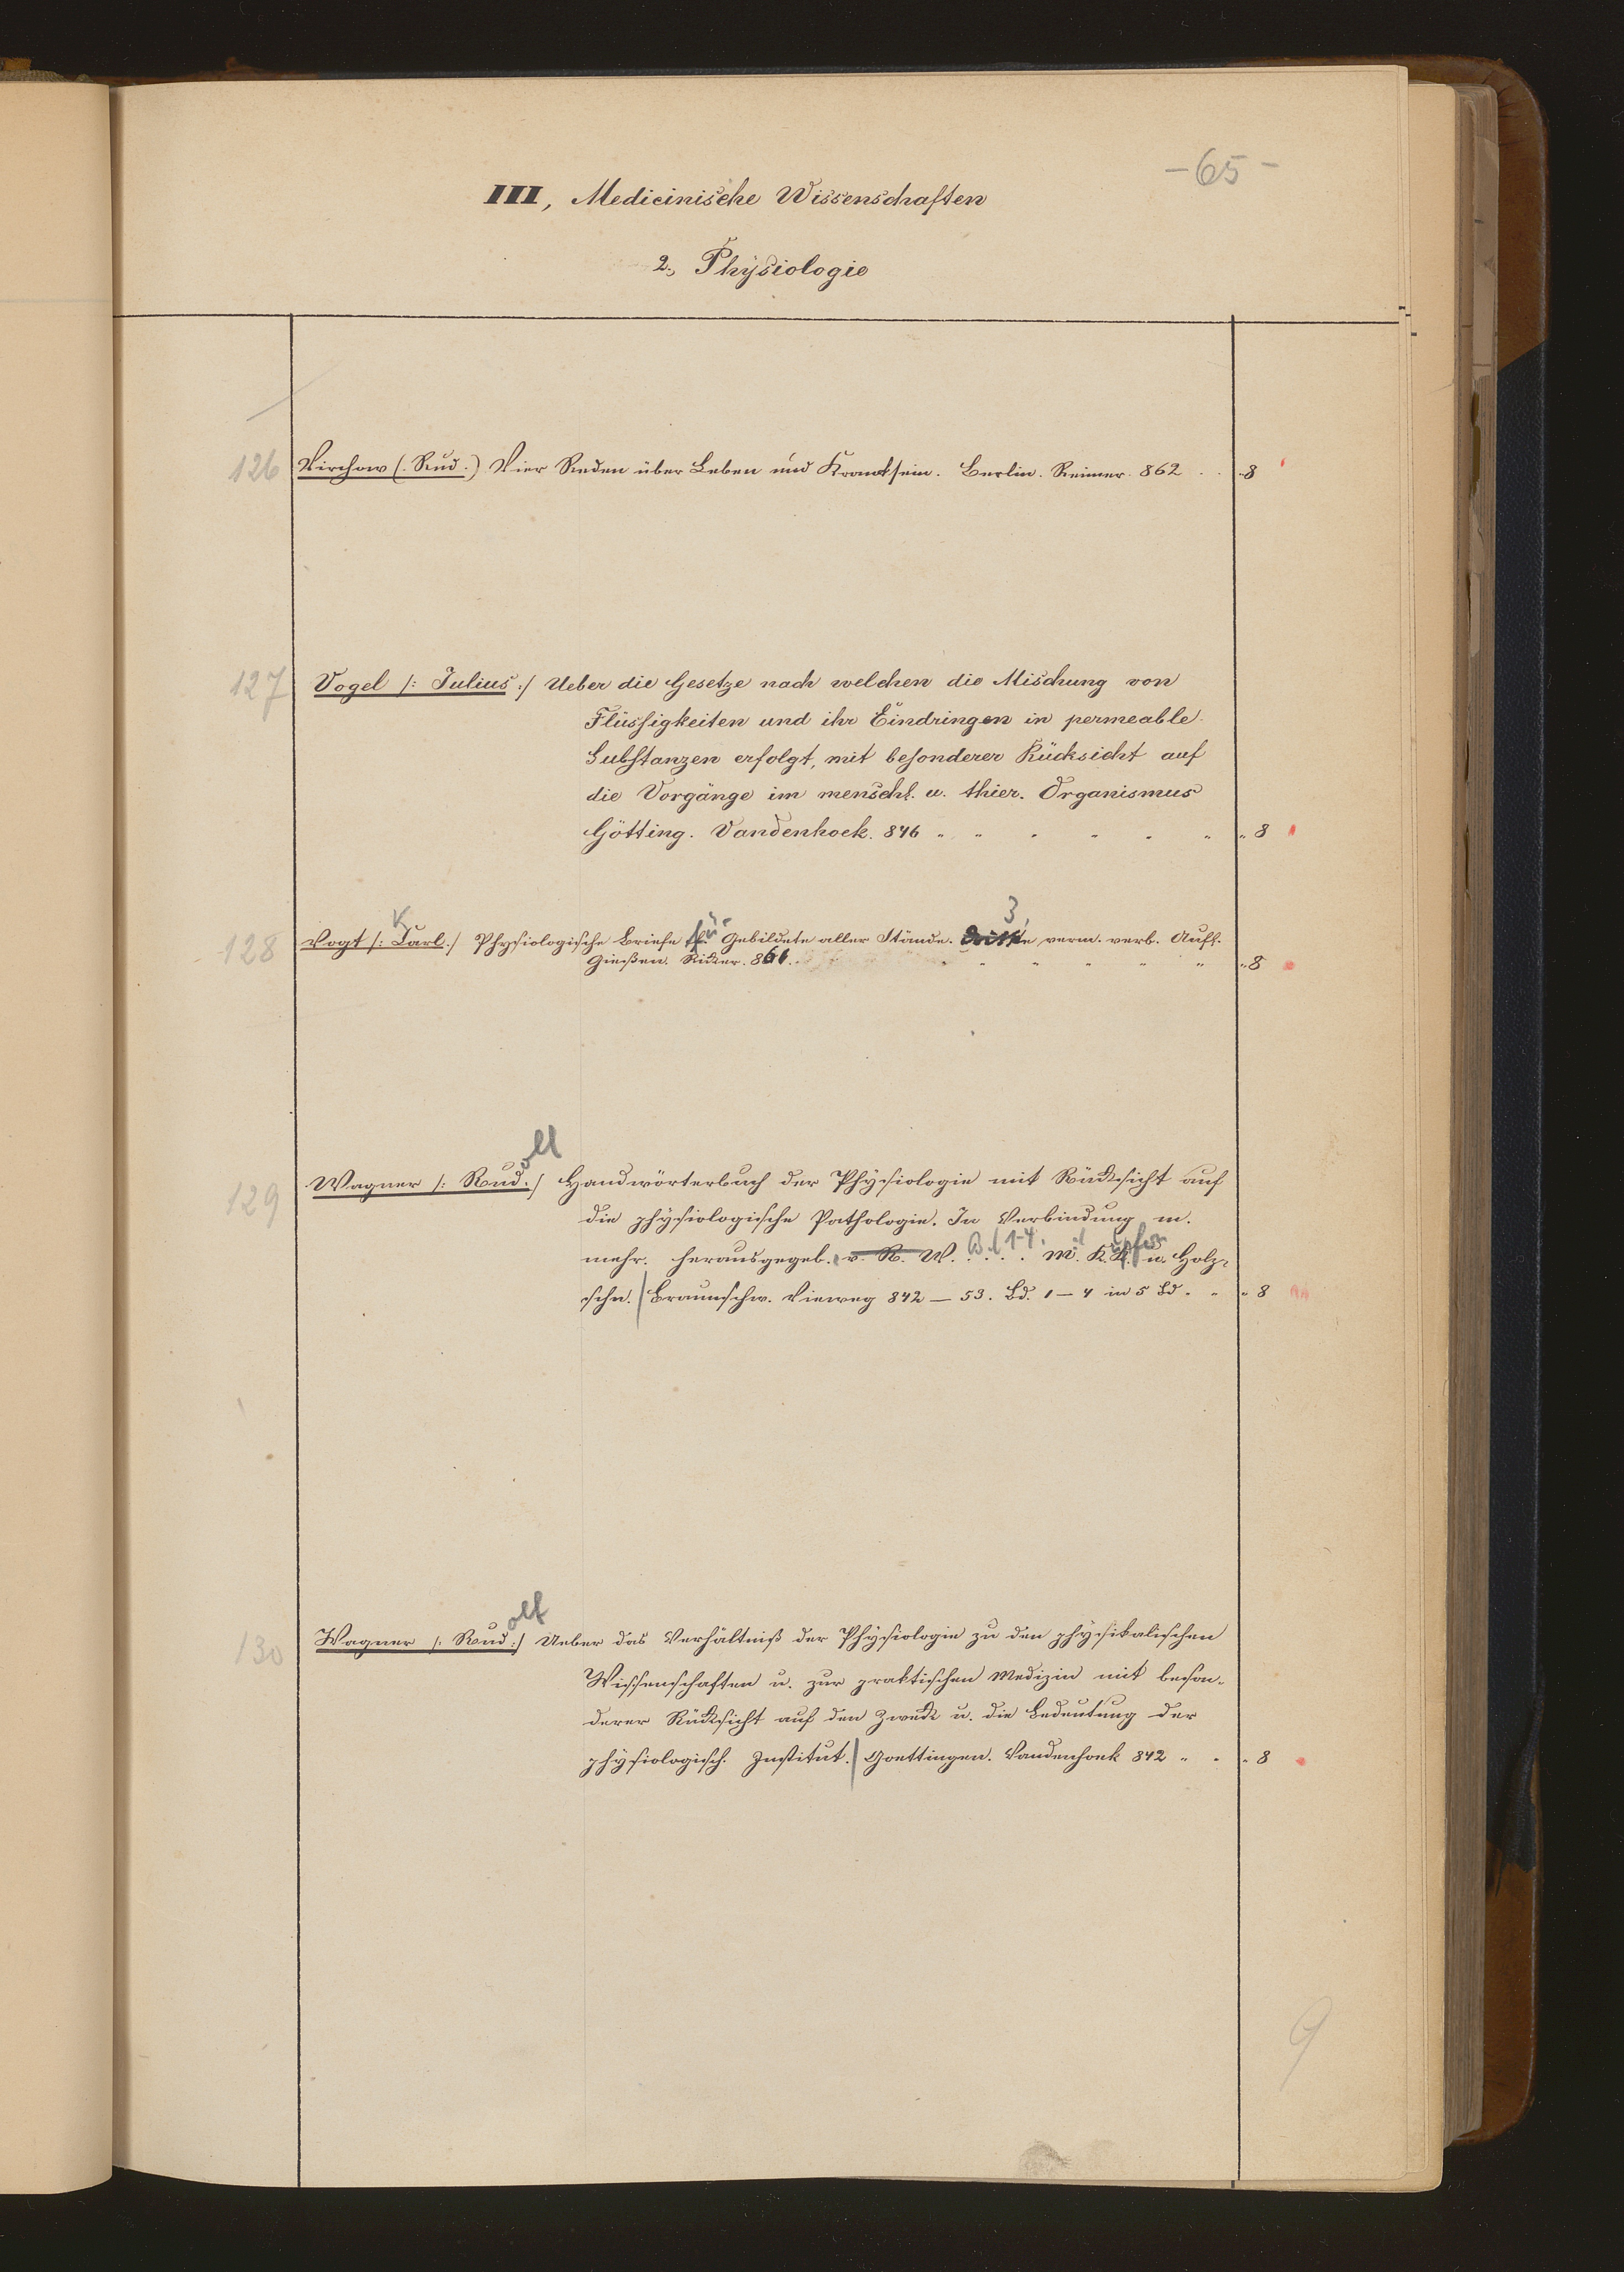 - 65 -
III, Medicinische Wissenschaften
2., Physiologie
126 Virchow (. Rud.) Vier Reden über Leben und Kranksein. Berlin. Reimer. 862 . . . 8
127 Vogel /: Julius :/ Ueber die Gesetze nach welchen die Mischung von
Flüssigkeiten und ihr Eindringen in permeable
Substanzen erfolgt, mit besonderer Rücksicht auf
die Vorgänge im menschl. u. thier. Organismus
Götting. Vandenhoek. 846 " " " " " " " 8
K 3,
128 Vogt /: Carl :/ Physiologische Briefe für Gebildete aller Stände. Dritte, verm. verb. Aufl.
Gießen. Ricker. 861. " " " " " " " 8
olf
129 Wagner /: Rud. :/ Handwörterbuch der Physiologie mit Rücksicht auf
die physiologische Pathologie. In Verbindung m.
Bd 1-4. it upfer
mehr. herausgegeb. v. R. W. . . . . M. K.K. u. Holz-
schn. / Braunschw. Vieweg 842 — 53. Bd. 1 — 4 in 5 Bd. " " 8
olf
130 Wagner /: Rud :/ Ueber das Verhältniß der Physiologie zu den physikalischen
Wissenschaften u. zur praktischen Medizin mit beson-
derer Rücksicht auf den Zweck u. die Bedeutung der
physiologisch. Institut. / Goettingen. Vandenhoek 842 " " " 8
9